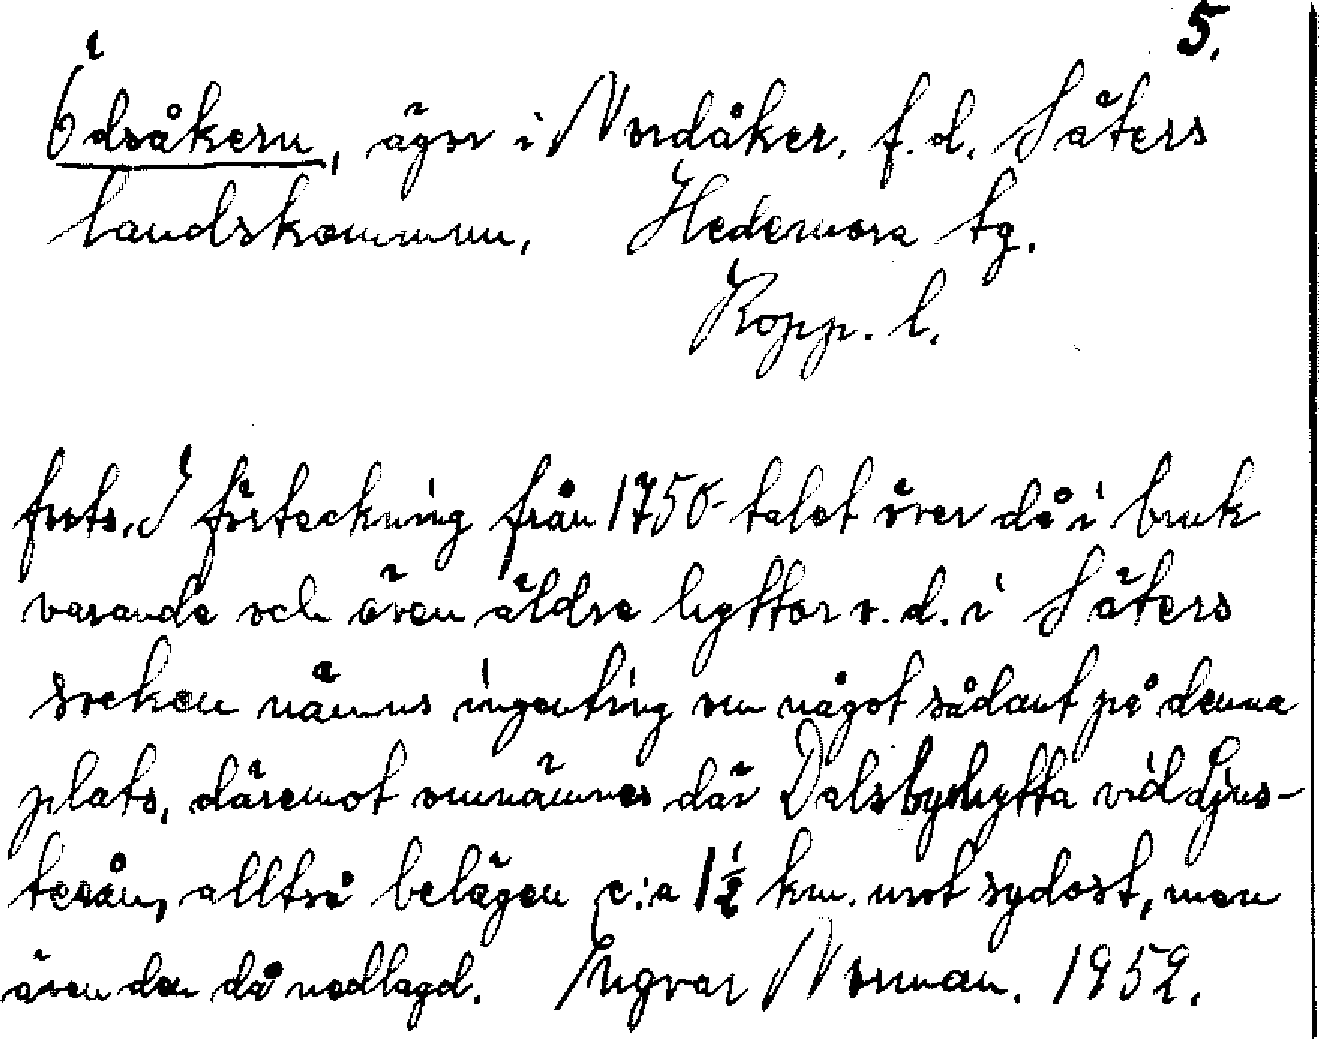 5.
Ödsåkern, ägor i Nordåker. f.d. Säters
landskommun, Hedemora tg.
Kopp. l.
forts. I förteckning från 1750-talet över då i bruk
varande och även äldre hyttor o.d. i Säters
socken nämns ingenting om något sådant på denna
plats, däremot omnämnes där Dalsbyhytta vid Ljus-
terån, alltså belägen c:a 1½ km. mot sydost, men
även den då nedlagd. Yngvar Norman. 1952.